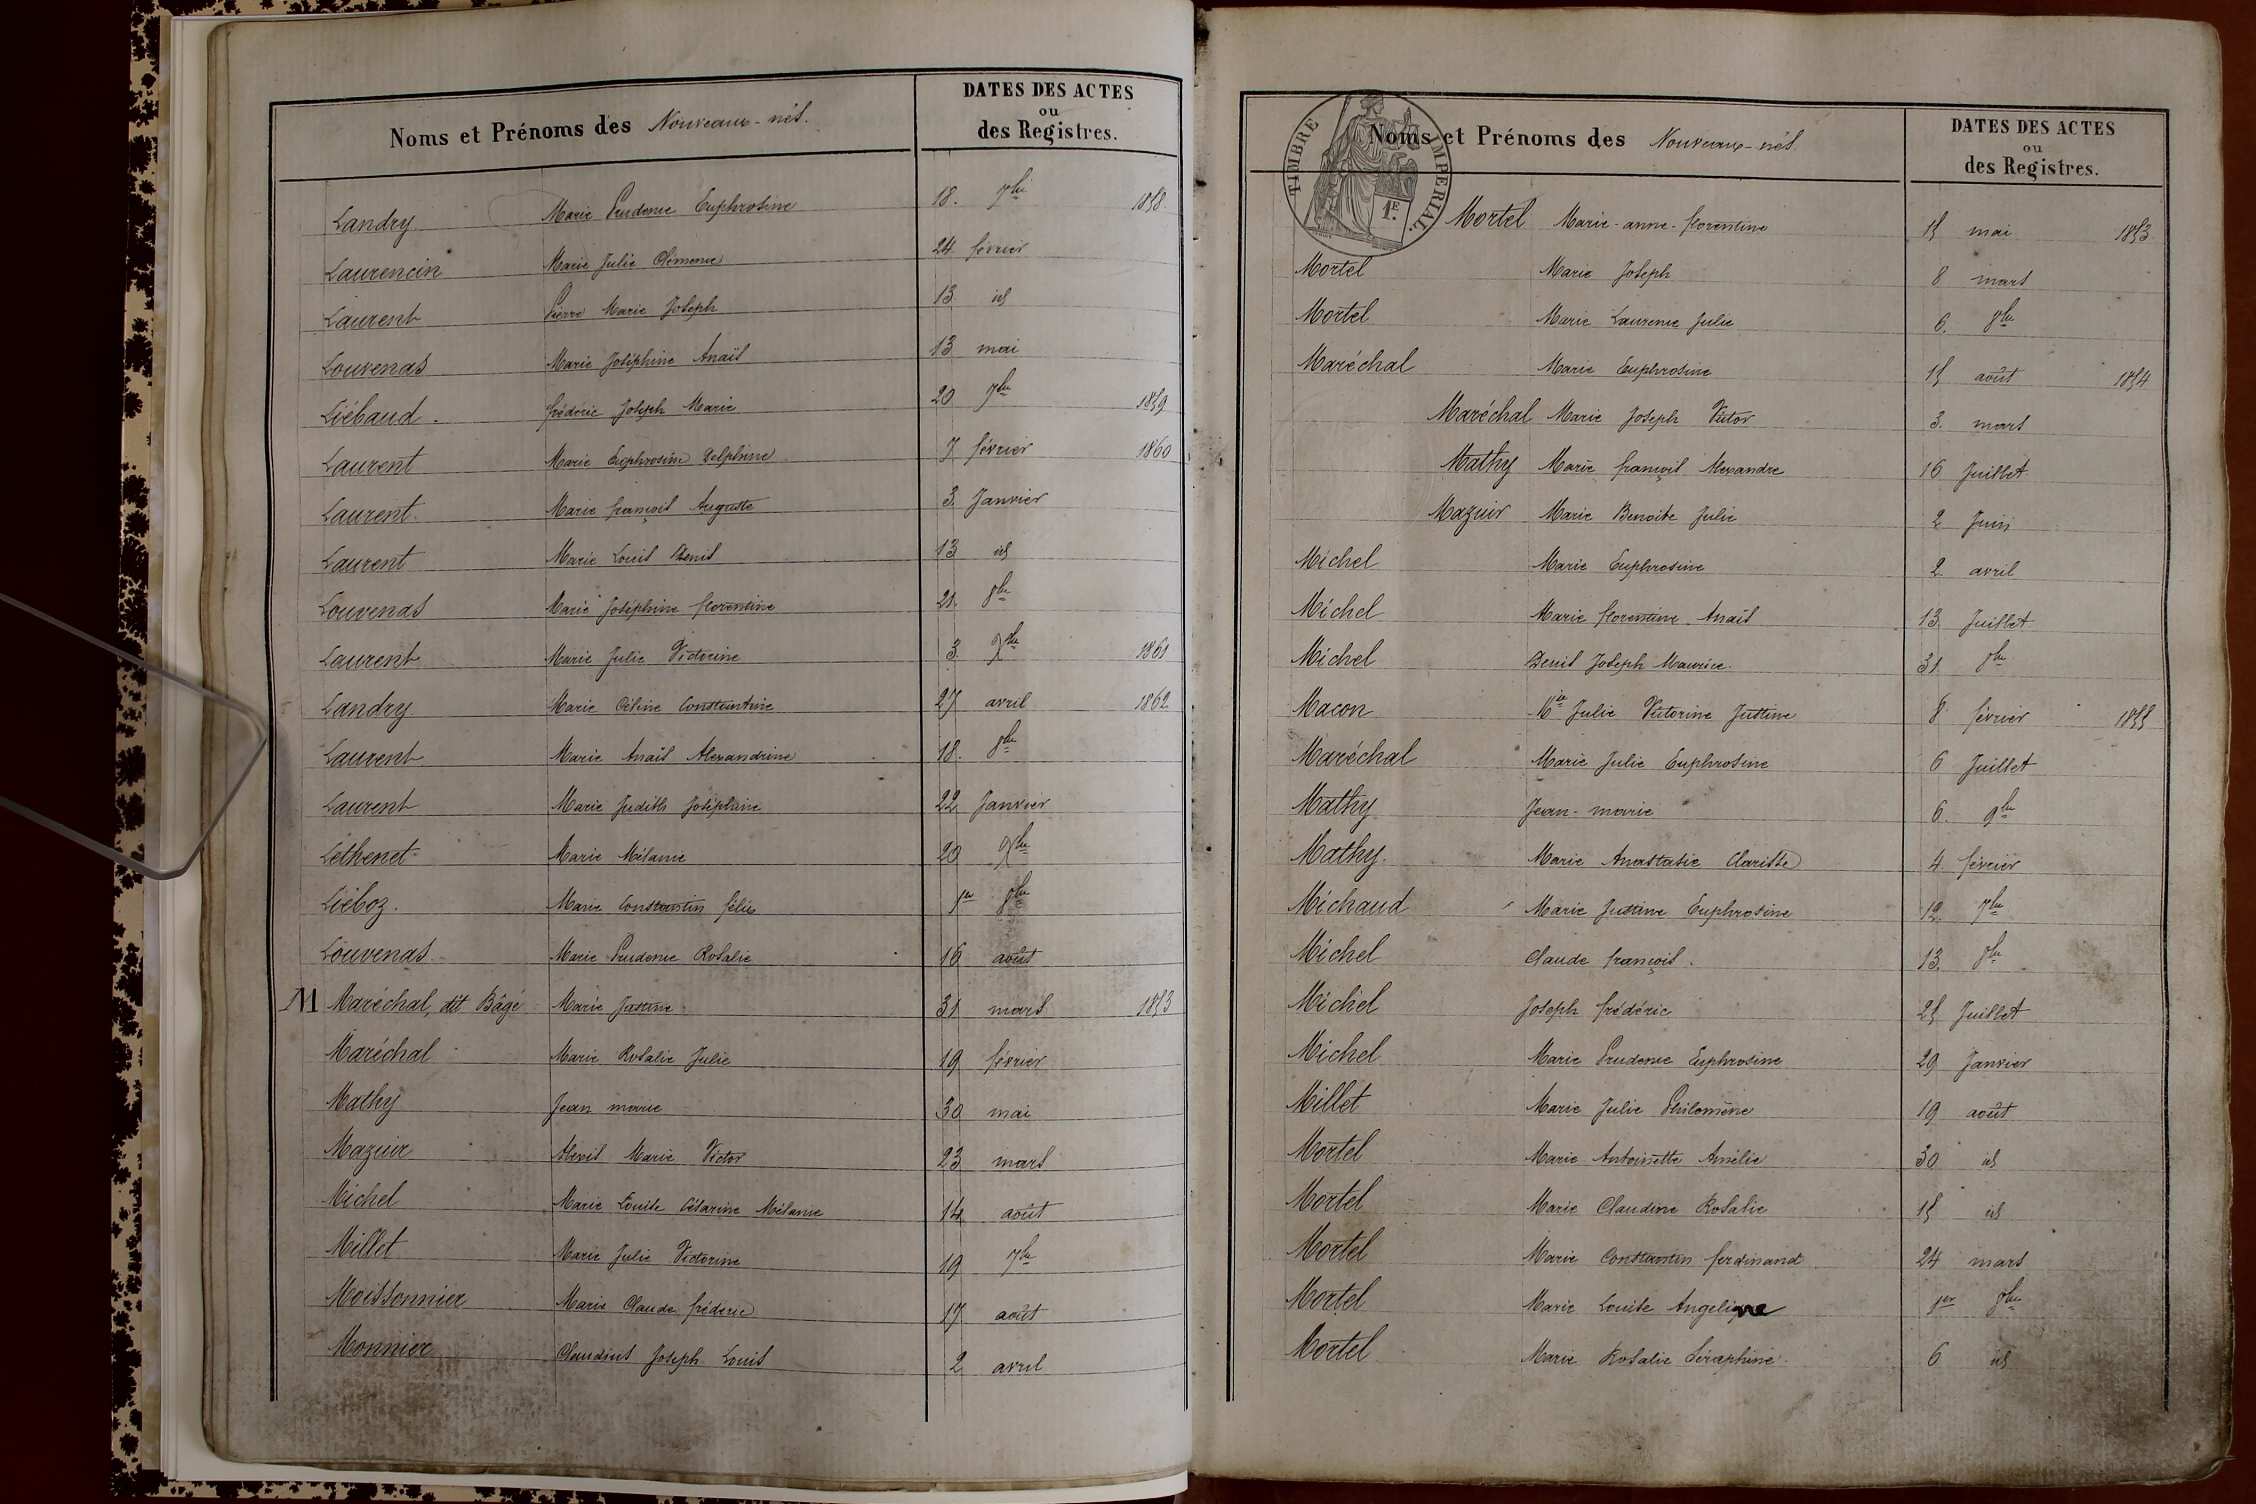 Noms et Prénoms des Nouveaux-nés.
DATES DES ACTES
ou
des Registres.
Landry Marie Prudence Euphrosine 18. 7bre 1858
Laurencin Marie Julie Clémence 24 février
Laurent Pierre Marie Joseph 13 id
Louvenas Marie Joséphine Anaïs 13 mai
Liébaud. frédéric Joseph Marie 20 7bre 1859
Laurent Marie Euphrosine Delphine 7 février 1860
Laurent. Marie françois Auguste 3. Janvier
Laurent Marie Louis Denis 13 id
Louvenas Marie Joséphine florentine 21. 8bre
Laurent Marie Julie Victorine 3. Xbre 1861
Landry Marie Céline Constantine 27 avril 1862
Laurent Marie Anaïs Alexandrine 18. 8bre
Laurent Marie Judith Joséphine 22 Janvier
Léthenet Marie Mélanie 20 Xbre
Liéboz. Marie Constantin félix 1er 8bre
Louvenas Marie Prudence Rosalie 16 août
M Maréchal, dit Bâgé Marie Justine 31 mars 1853
Maréchal Marie Rosalie Julie 19 février
Mathy Jean marie 30 mai
Mazuir Alexis Marie Victor 23 mars
Michel Marie Louise Césarine Mélanie 14 août
Millet Marie Julie Victorine 19 7bre
Moissonnier Marie Claude fréderic 17 août
Monnier Claudius Joseph Louis 2 avril
TIMBRE IMPERIAL.
1E.
Noms et Prénoms des Nouveaux-nés.
DATES DES ACTES
ou
des Registres.
Mortel Marie-anne-florentine 15 mai 1853
Mortel Marie Joseph 8 mars
Mortel Marie Laurence Julie 6. 8bre
Maréchal Marie Euphrosine 15 août 1854
Maréchal Marie Joseph Victor 3. mars
Mathy Marie françois Alexandre 16 Juillet
Mazuir Marie Benoite Julie 2 Juin
Michel Marie Euphrosine 2 avril
Michel Marie florentine Anaïs 13 Juillet
Michel Denis Joseph Maurice. 31 8bre
Macon Mie Julie Victorine Justine 8 février 1855
Maréchal Marie Julie Euphrosine 6 Juillet
Mathy Jean-marie 6. 9bre
Mathy. Marie Anastasie Clarisse 4 février
Michaud Marie Justine Euphrosine 12. 7bre
Michel Claude françois. 13. 8bre
Michel Joseph frédéric 25 Juillet
Michel Marie Prudence Euphrosine 29 Janvier
Millet Marie Julie Philomène 19 août
Mortel Marie Antoinette Amélie 30 id
Mortel Marie Claudine Rosalie 15 id
Mortel Marie Constantin ferdinand 24 mars
Mortel Marie Louise Angelique 1er 8bre
Mortel Marie Rosalie Séraphine. 6 id